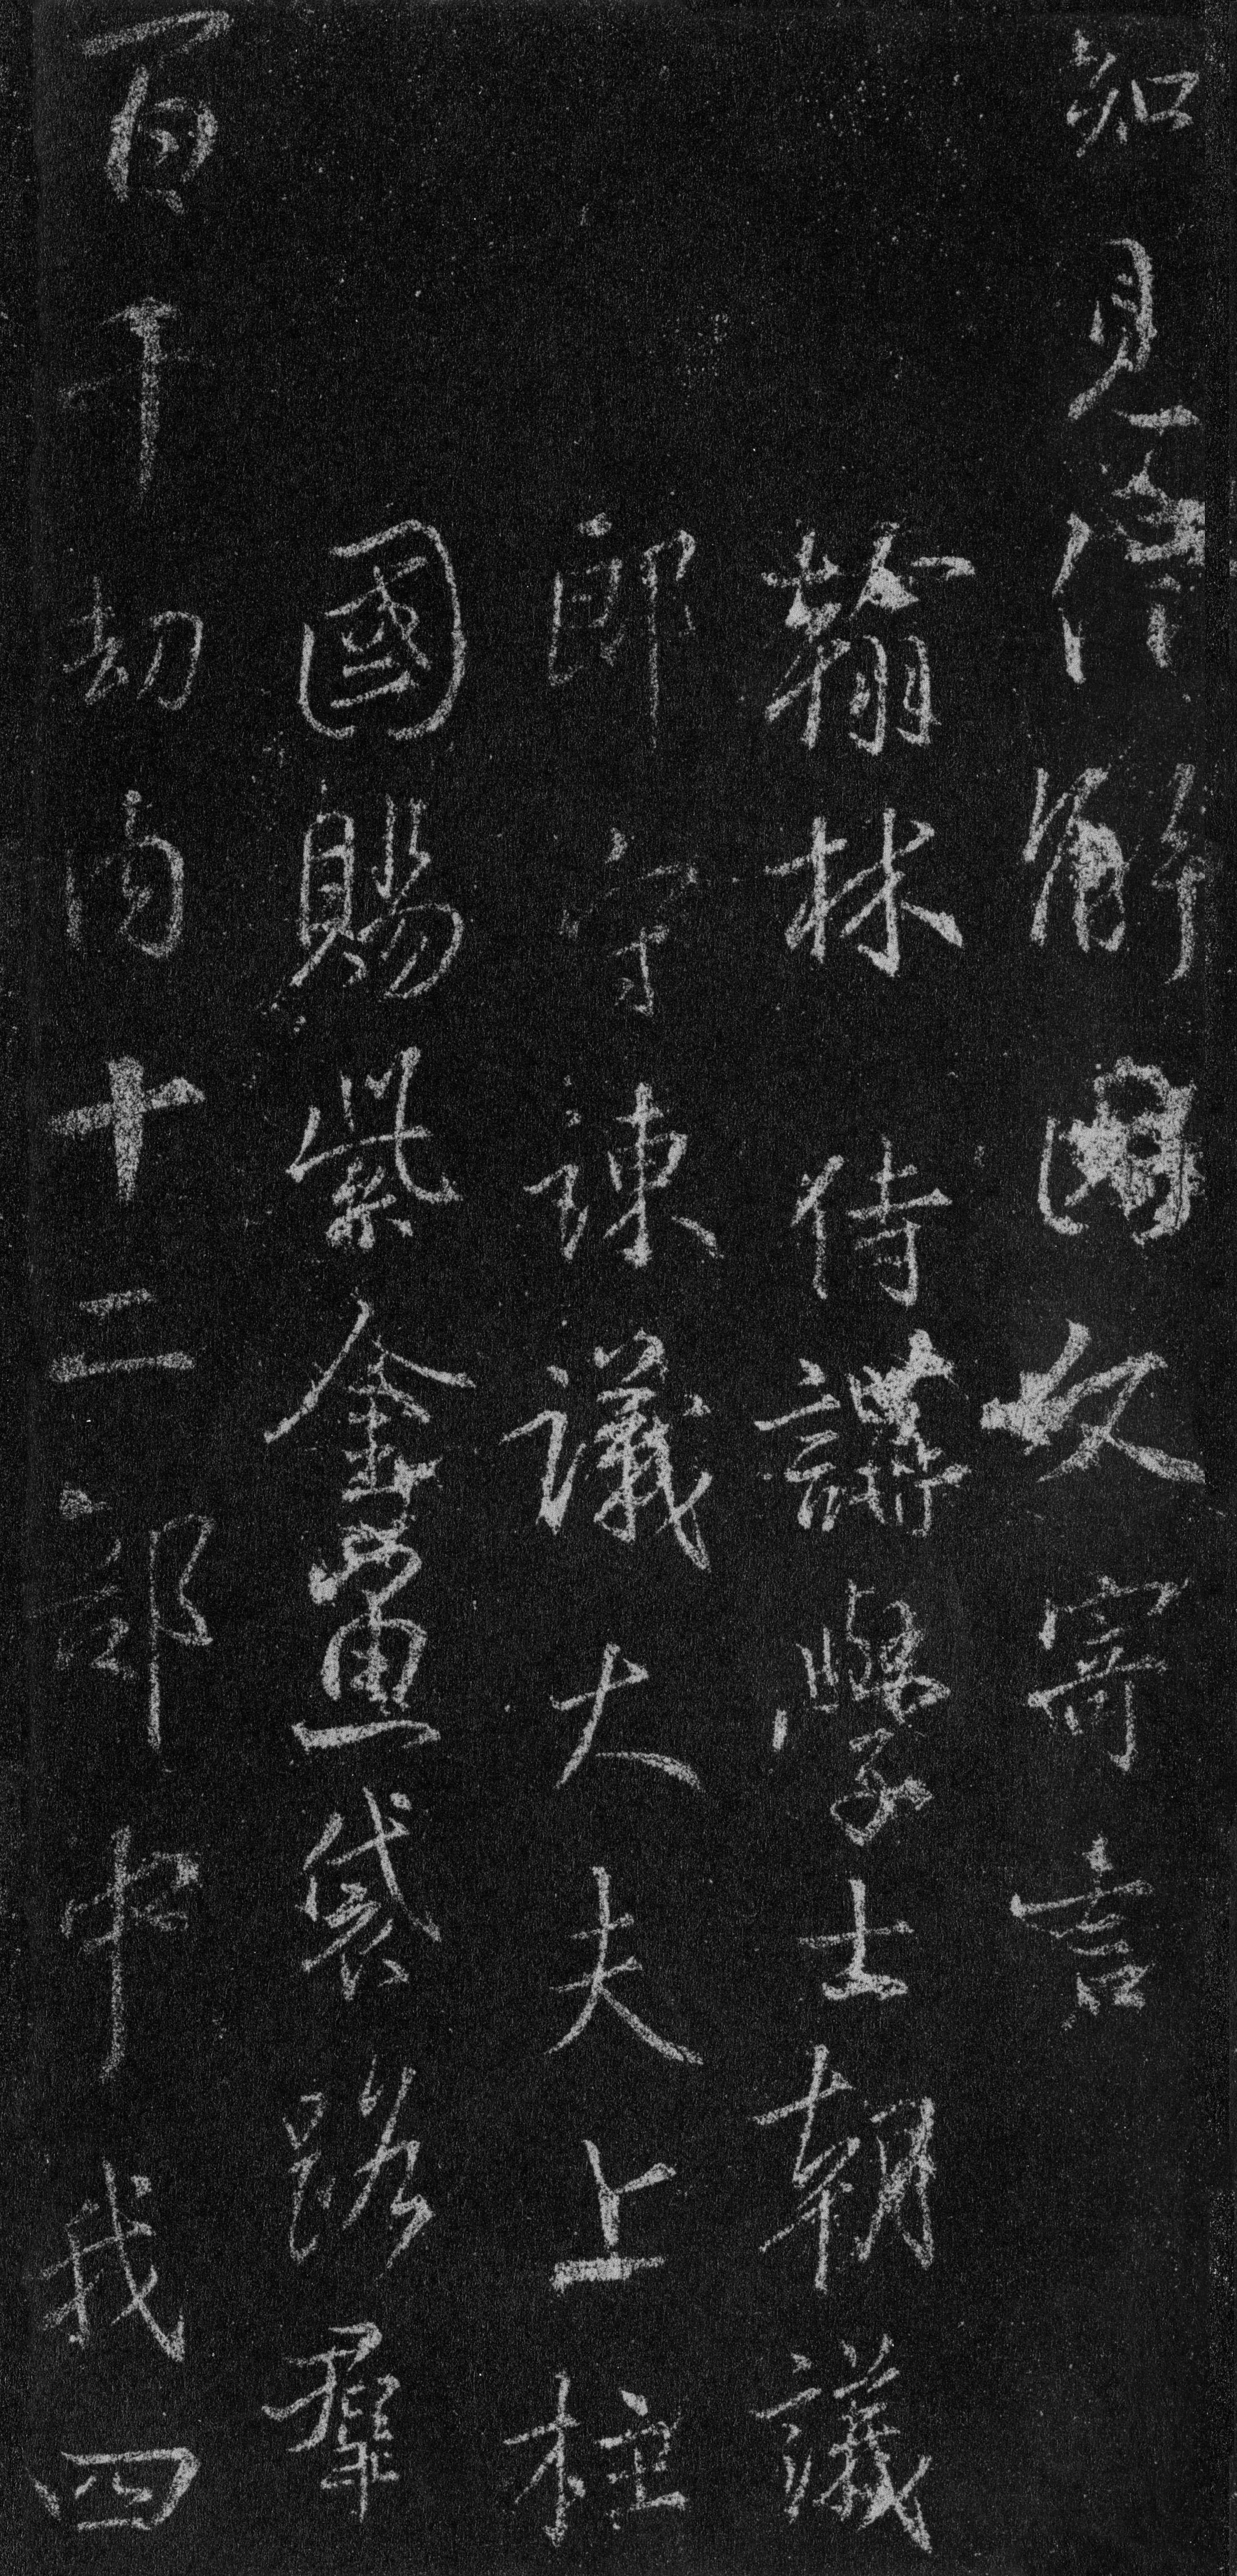 知見解奴寄言
翰林侍講學士朝議
郎守諫議大夫上柱
國賜紫金魚袋路羣
百千劫內十二部中我四